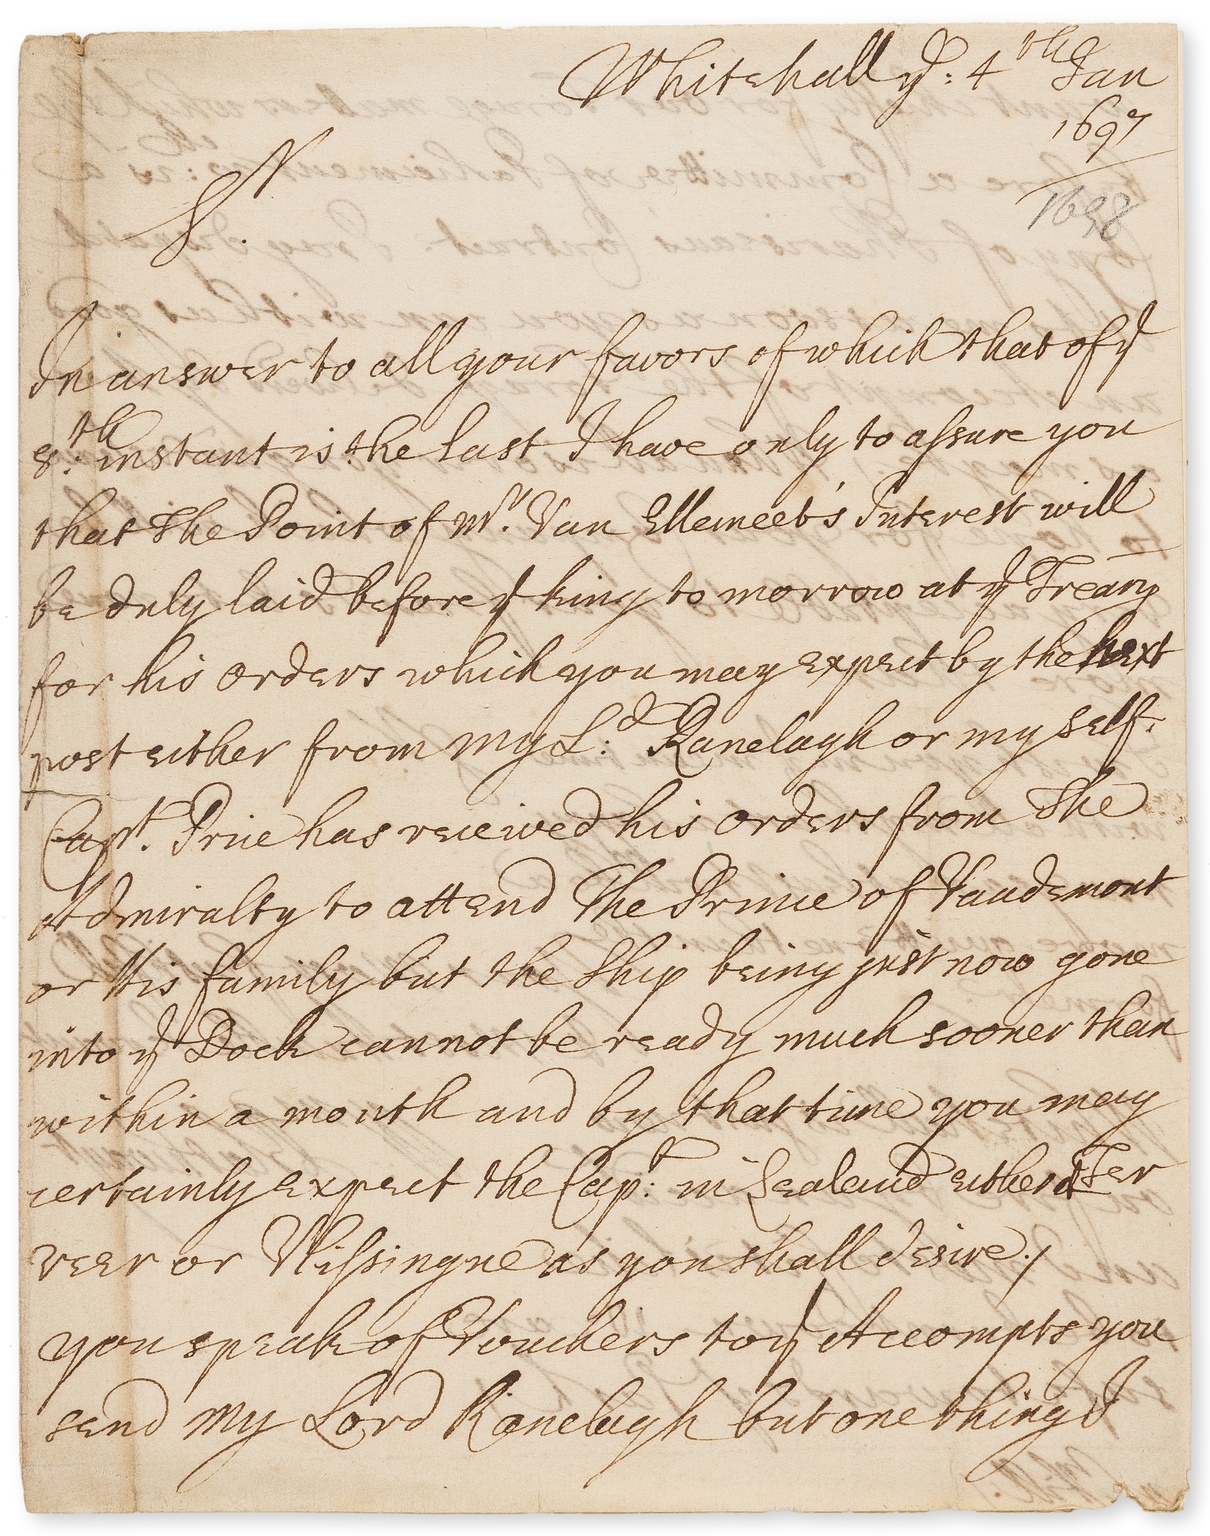 Whitehall yᵉ: 4ᵗʰ Jan
1697
1698
Sʳ.
In answer to all your favors of which that of yᵉ
8ᵗʰ: instant is the last I have only to assure you
that The Point of Mʳ. Van Ellemeet's Interest will
be duly laid before yᵉ King to morrow at yᵉ Treāry
for his Orders which you may expect by the next
post either from my Lᵈ: Ranelagh or my self.
Capᵗ. Price has received his Orders from The
Admiralty to attend The Prince of Vaudemont
or His family but the Ship being just now gone
into yᵉ Dock cannot be ready much sooner than
within a month and by that time you may
certainly expect the Capᵗ: in Zealand either Ter
veer or Vlissingue as you shall desire./
you speak of Vouchers to yᵉ Accompts you
send my Lord Ranelagh but one thing I